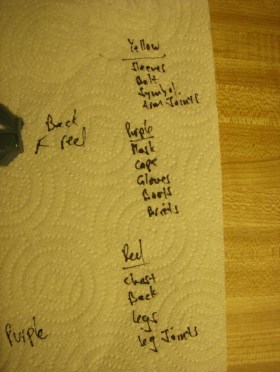 Yellow
Sleeves
Belt
Symbol
Arm Joints
Back
Purple
Mask
Cape
Gloves
Boots
Briefs
Red
Chest
Back
Legs
Leg Joints
Purple